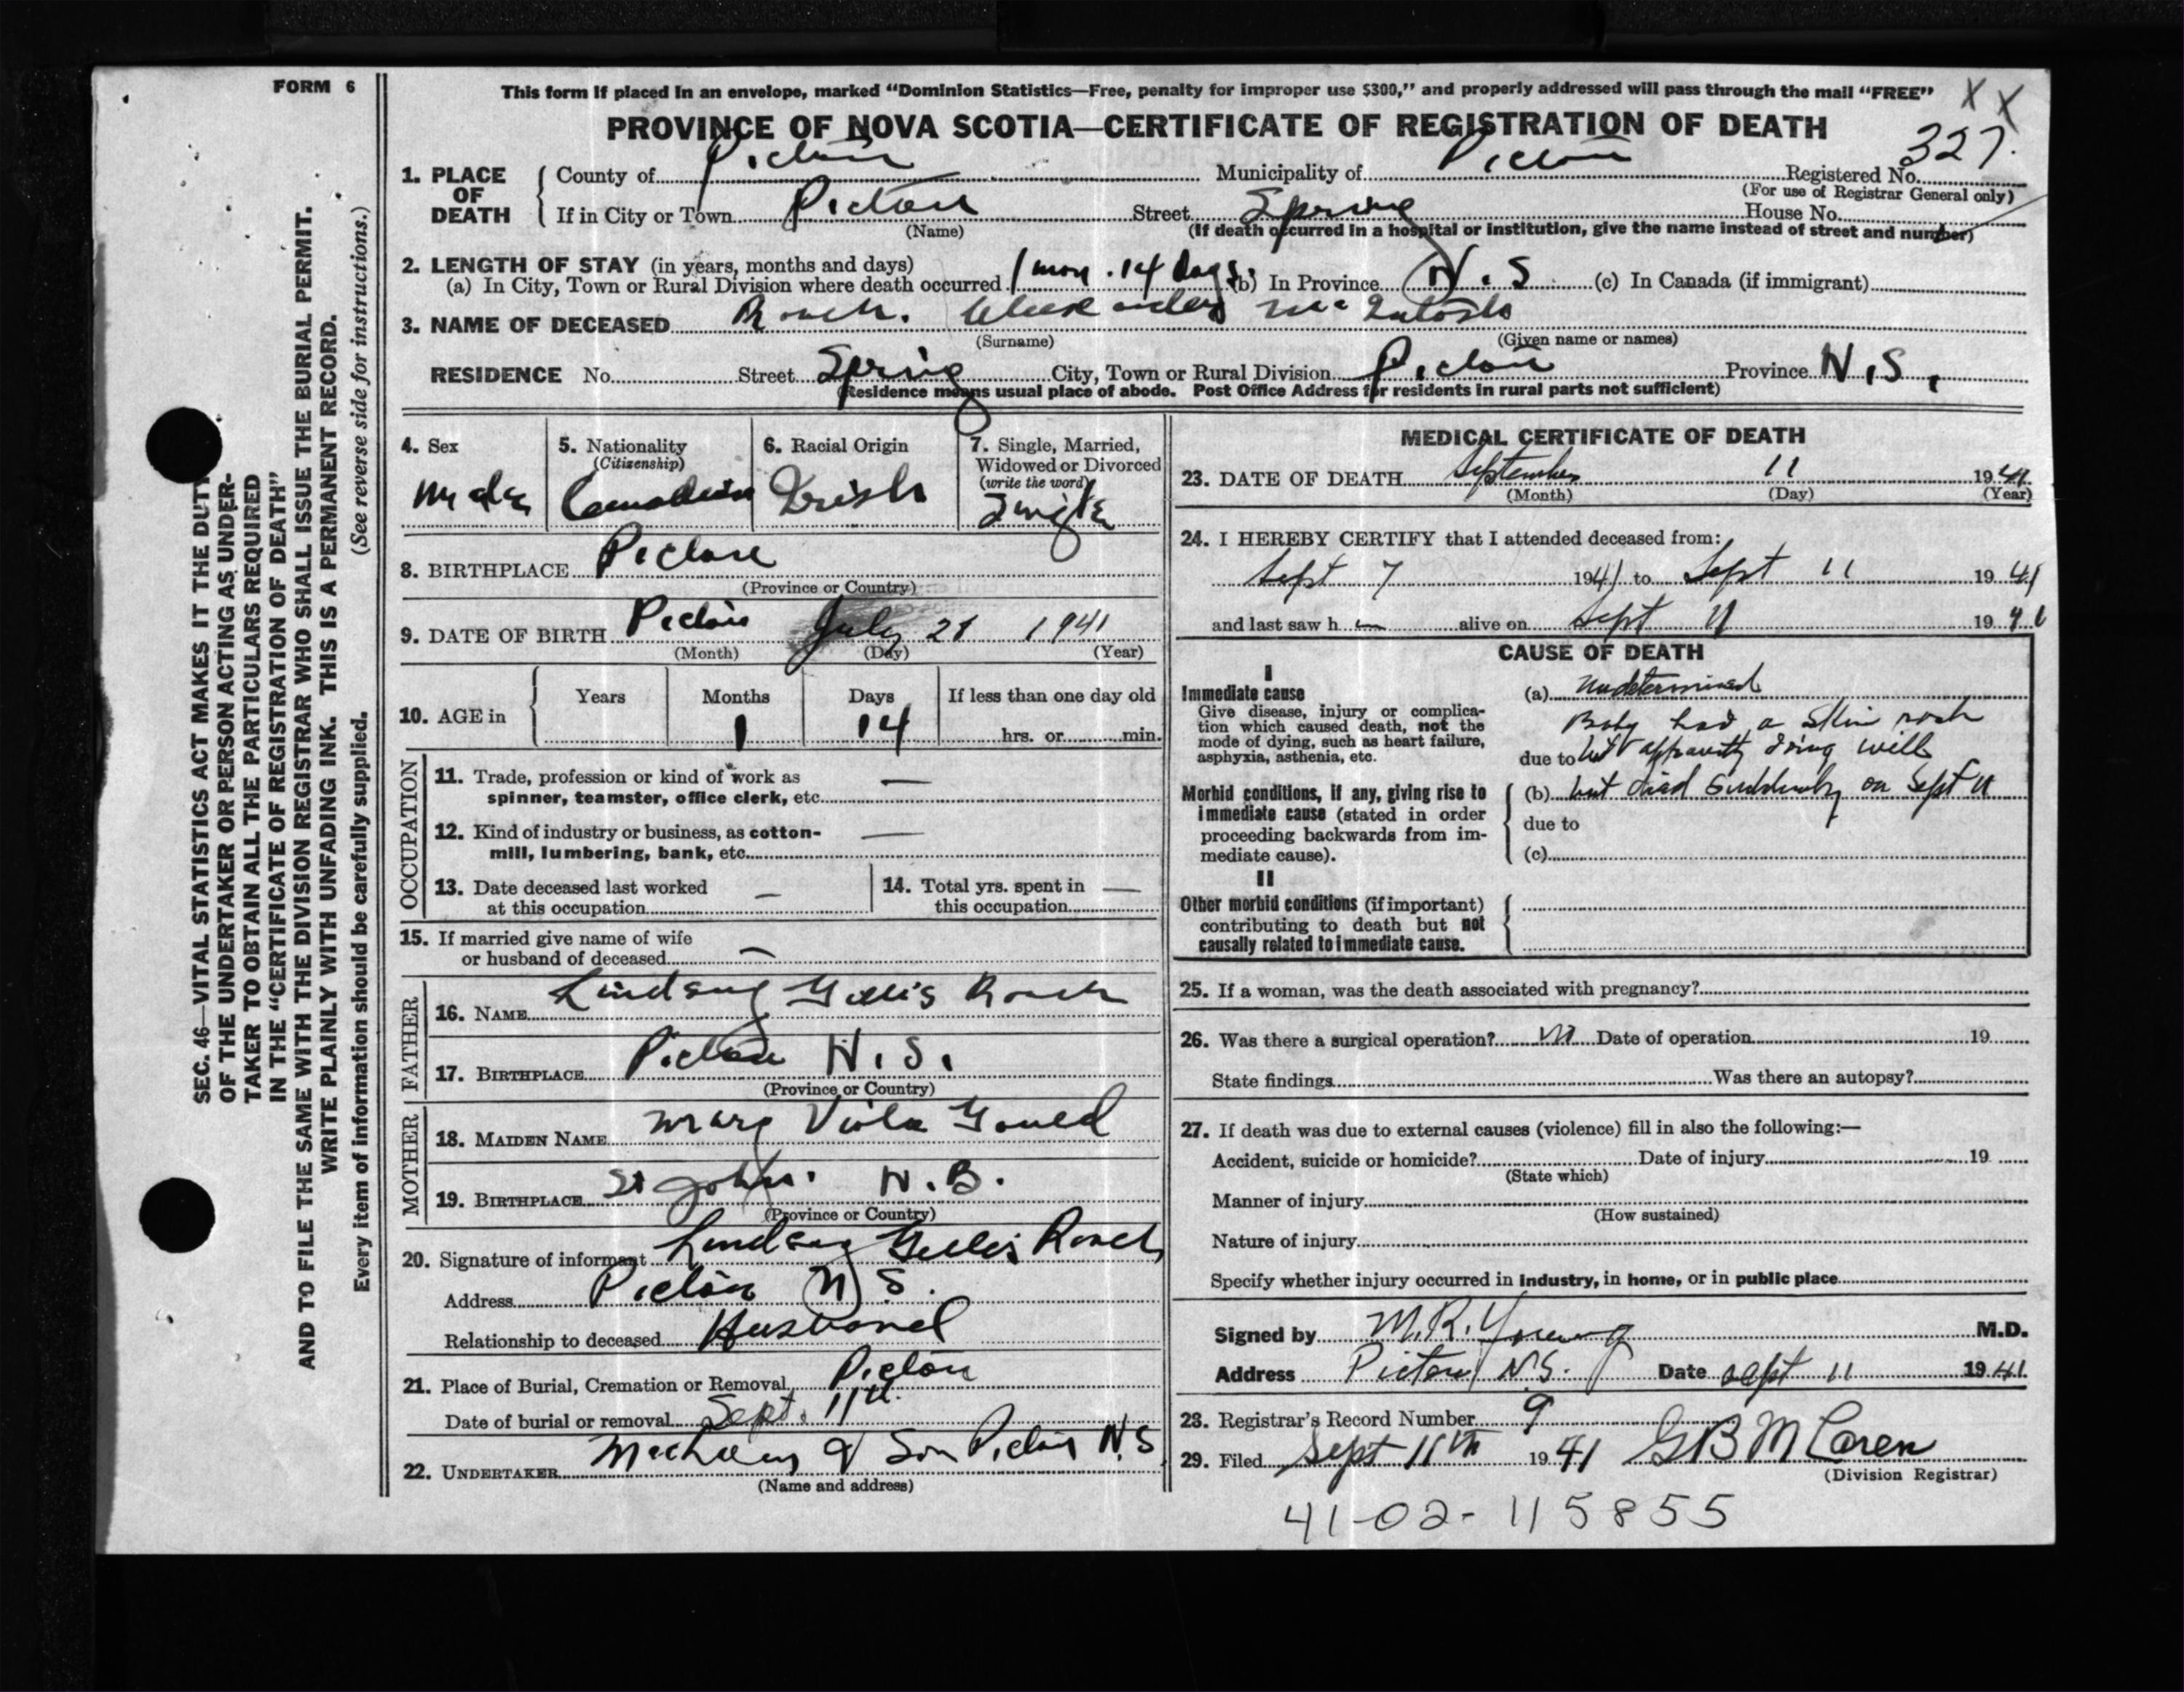 FORM 6
This form if placed in an envelope, marked "Dominion Statistics—Free, penalty for improper use $300," and properly addressed will pass through the mail "FREE"
X X
PROVINCE OF NOVA SCOTIA—CERTIFICATE OF REGISTRATION OF DEATH
1. PLACE OF DEATH
County of Pictou Municipality of Pictou Registered No. 327.
(For use of Registrar General only)
If in City or Town Pictou Street Spring House No.
(Name) (If death occurred in a hospital or institution, give the name instead of street and number)
2. LENGTH OF STAY (in years, months and days)
(a) In City, Town or Rural Division where death occurred 1 mon. 14 days. (b) In Province N.S (c) In Canada (if immigrant)
3. NAME OF DECEASED Roach. Alexander McIntosh
(Surname) (Given name or names)
RESIDENCE No. Street Spring City, Town or Rural Division Pictou Province N.S.
(Residence means usual place of abode. Post Office Address for residents in rural parts not sufficient)
4. Sex
Male
5. Nationality
(Citizenship)
Canadian
6. Racial Origin
Irish
7. Single, Married,
Widowed or Divorced
(write the word)
Single
8. BIRTHPLACE Pictou
(Province or Country)
9. DATE OF BIRTH Pictou July 28 1941
(Month) (Day) (Year)
10. AGE in
Years Months Days If less than one day old
1 14 hrs. or min.
OCCUPATION
11. Trade, profession or kind of work as —
spinner, teamster, office clerk, etc.
12. Kind of industry or business, as cotton- —
mill, lumbering, bank, etc.
13. Date deceased last worked —
at this occupation
14. Total yrs. spent in —
this occupation
15. If married give name of wife
or husband of deceased —
FATHER
16. NAME Lindsay Gillis Roach
17. BIRTHPLACE Pictou N.S.
(Province or Country)
MOTHER
18. MAIDEN NAME Mary Viola Gould
19. BIRTHPLACE St John. N.B.
(Province or Country)
20. Signature of informant Lindsay Gillis Roach
Address Pictou N S.
Relationship to deceased Husband
21. Place of Burial, Cremation or Removal Pictou
Date of burial or removal Sept. 11th.
22. UNDERTAKER & Son Pictou N.S
(Name and address)
MEDICAL CERTIFICATE OF DEATH
23. DATE OF DEATH September 11 1941
(Month) (Day) (Year)
24. I HEREBY CERTIFY that I attended deceased from:
Sept 7 1941 to Sept 11 1941
and last saw h alive on Sept 11 1941
CAUSE OF DEATH
I
Immediate cause
Give disease, injury or complica-
tion which caused death, not the
mode of dying, such as heart failure,
asphyxia, asthenia, etc.
(a) Undetermined
Baby had a skin rash
due to but apparently doing well
Morbid conditions, if any, giving rise to
immediate cause (stated in order
proceeding backwards from im-
mediate cause).
(b) but died suddenly on Sept 11
due to
(c)
II
Other morbid conditions (if important)
contributing to death but not
causally related to immediate cause.
25. If a woman, was the death associated with pregnancy?
26. Was there a surgical operation? no Date of operation 19
State findings Was there an autopsy?
27. If death was due to external causes (violence) fill in also the following:—
Accident, suicide or homicide? Date of injury 19
(State which)
Manner of injury
(How sustained)
Nature of injury
Specify whether injury occurred in industry, in home, or in public place
Signed by M.R. Young M.D.
Address Pictou N.S. Date Sept 11 1941
28. Registrar's Record Number 9
29. Filed Sept 11th 1941 G B McLaren
(Division Registrar)
41-02-115855
SEC. 46—VITAL STATISTICS ACT MAKES IT THE DUTY
OF THE UNDERTAKER OR PERSON ACTING AS UNDER-
TAKER TO OBTAIN ALL THE PARTICULARS REQUIRED
IN THE "CERTIFICATE OF REGISTRATION OF DEATH"
AND TO FILE THE SAME WITH THE DIVISION REGISTRAR WHO SHALL ISSUE THE BURIAL PERMIT.
WRITE PLAINLY WITH UNFADING INK. THIS IS A PERMANENT RECORD.
Every item of information should be carefully supplied. (See reverse side for instructions.)